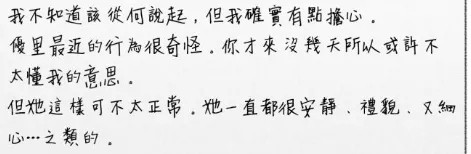 我不知道該從何說起，但我確實有點擔心。
優里最近的行為很奇怪。你才來沒幾天所以或許不
太懂我的意思。
但她這樣可不太正常。她一直都很安靜、禮貌、又細
心…之類的。